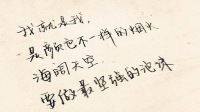 我就是我,
是颜色不一样的烟火
海阔天空
要做最坚强的泡沫